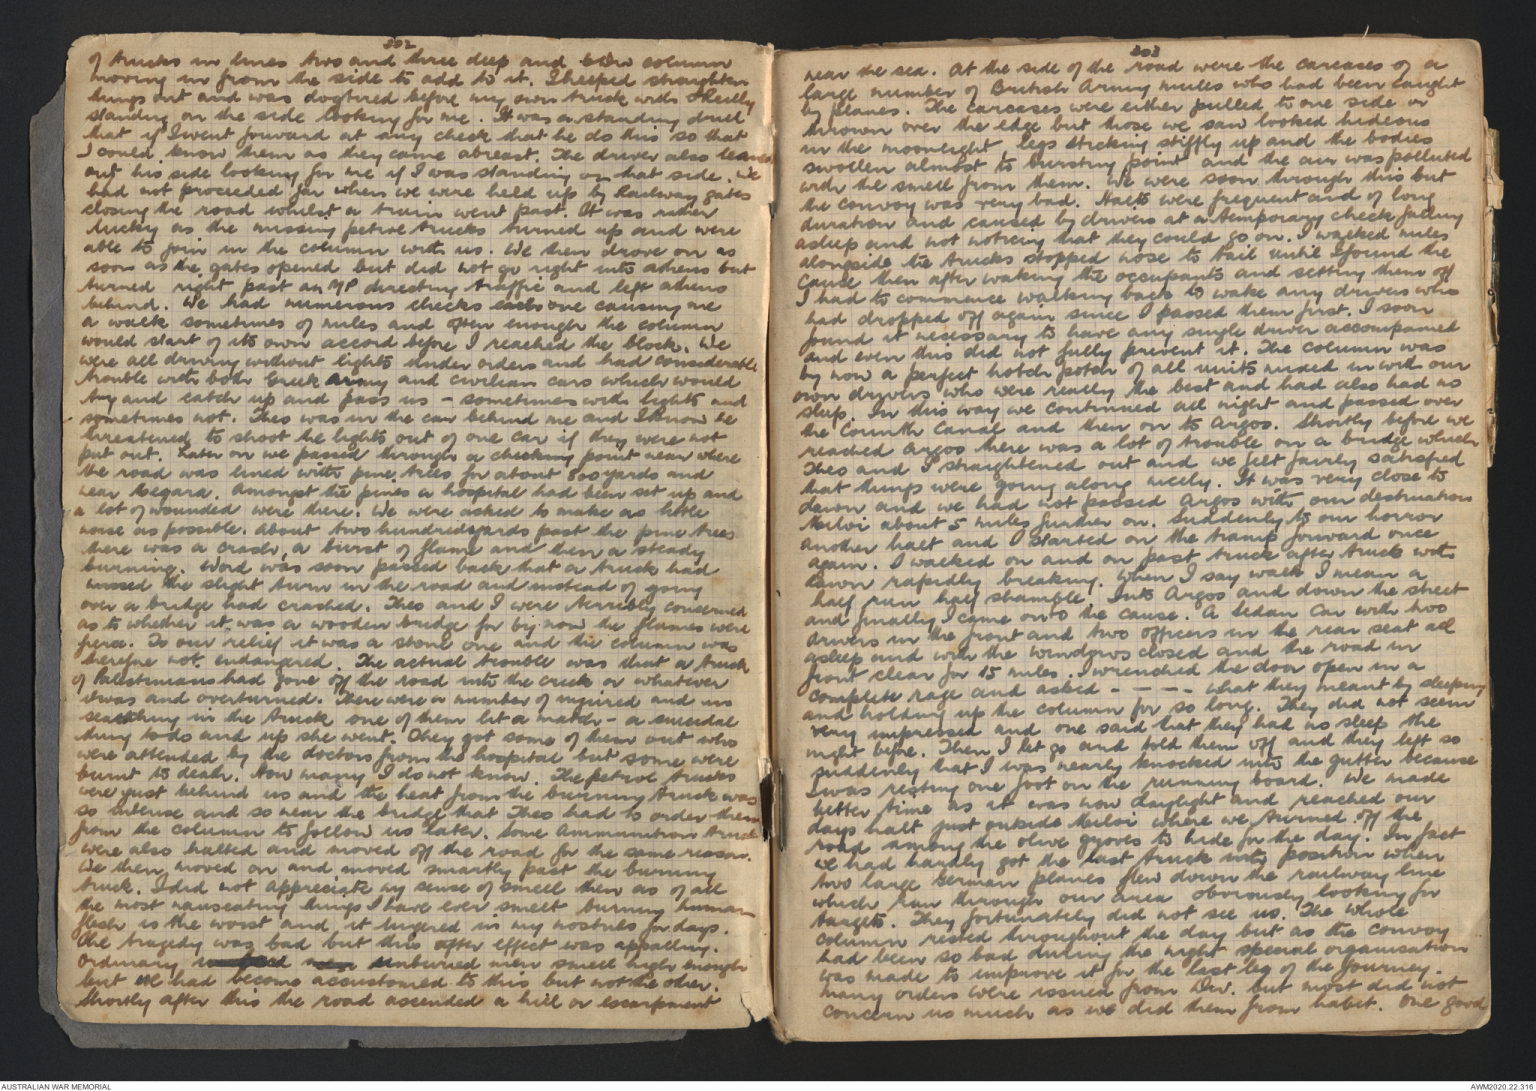 202
of trucks in lines two and three deep and our column
moving in from the side to add to it. I helped straighten
things out and was dogtired before my own truck with O'Reilly
standing on the side looking for me. It was a standing drill
that if I went forward at any check that he do this so that
I could know them as they came abreast. The driver also leaned
out his side looking for me if I was standing on that side. We
had not proceeded far when we were held up by Railway gates
closing the road whilst a train went past. It was rather
lucky as the missing petrol trucks turned up and were
able to join in the column with us. We then drove on as
soon as the gates opened but did not go right into athens but
turned right past an MP directing traffic and left athens
behind. We had numerous checks each one causing me
a walk sometimes of miles and often enough the column
would start of its own accord before I reached the block. We
were all driving without lights under orders and had considerable
trouble with both Greek army and civilian cars which would
try and catch up and pass us - sometimes with lights and
sometimes not. Theo was in the car behind me and I know he
threatened to shoot the lights out of one car if they were not
put out. Later on we passed through a checking point near where
the road was lined with pine trees for about 800 yards and
near Megara. Amongst the pines a hospital had been set up and
a lot of wounded were there. We were asked to make as little
noise as possible. About two hundred yards past the pine trees
there was a crash, a burst of flame and then a steady
burning. Word was soon passed back that a truck had
missed the slight turn in the road and instead of going
over a bridge had crashed. Theo and I were terribly concerned
as to whether it was a wooden bridge for by now the flames were
fierce. To our relief it was a stone one and the column was
therefore not endangered. The actual trouble was that a truck
of Palestinians had gone off the road into the creek or whatever
it was and overturned. There were a number of injured and in
searching in the truck one of them lit a match - a suicidal
thing to do and up she went. They got some of them out who
were attended by the doctors from the hospital but some were
burnt to death. How many I do not know. The petrol trucks
were just behind us and the heat from the burning truck was
so intense and so near the bridge that Theo had to order them
from the column to follow us later. Some ammunition trucks
were also halted and moved off the road for the same reason.
We then moved on and moved smartly past the burning
truck. I did not appreciate my sense of smell then as of all
the most nauseating things I have ever smelt burning human
flesh is the worst and it lingered in my nostrils for days.
The tragedy was bad but this after effect was appalling.
Ordinary unburied men smell high enough
but we had become accustomed to this but not the other.
Shortly after this the road ascended a hill or escarpment
203
near the sea. At the side of the road were the carcases of a
large number of British Army mules who had been caught
by planes. The carcases were either pulled to one side or
thrown over the edge but those we saw looked hideous
in the moonlight, legs sticking stiffly up and the bodies
swollen almost to bursting point and the air was polluted
with the smell from them. We were soon through this but
the convoy was very bad. Halts were frequent and of long
duration and caused by drivers at a temporary check falling
asleep and not noticing that they could go on. I walked miles
alongside the trucks stopped nose to tail until I found the
cause then after waking the occupants and setting them off
I had to commence walking back to wake any drivers who
had dropped off again since I passed them first. I soon
found it necessary to have any single driver accompanied
and even this did not fully prevent it. The column was
by now a perfect hotch potch of all units mixed in with our
own drivers who were really the best and had also had no
sleep. In this way we continued all night and passed over
the Corinth Canal and then on to Argos. Shortly before we
reached Argos there was a lot of trouble on a bridge which
Theo and I straightened out and we felt fairly satisfied
that things were going along nicely. It was very close to
dawn and we had not passed Argos with our destination
Miloi about 5 miles further on. Suddenly to our horror
another halt and I started on the tramp forward once
again. I walked on and on past truck after truck with
dawn rapidly breaking. When I say walk I mean a
half run half shamble. Into Argos and down the street
and finally I came onto the cause. A Sedan Car with two
drivers in the front and two officers in the rear seat all
asleep and with the windows closed and the road in
front clear for 15 miles. I wrenched the door open in a
complete rage and asked - - - - what they meant by sleeping
and holding up the column for so long. They did not seem
very impressed and one said that they had no sleep the
night before. Then I let go and told them off and they left so
suddenly that I was nearly knocked into the gutter because
I was resting one foot on the running board. We made
better time as it was now daylight and reached our
days halt just outside Miloi where we turned off the
road among the olive groves to hide for the day. In fact
we had hardly got the last truck into position when
two large German planes flew down the railway line
which ran through our area obviously looking for
targets. They fortunately did not see us. The whole
column rested throughout the day but as the convoy
had been so bad during the night special organisation
was made to improve it for the last leg of the journey.
Many orders were issued from Div. but most did not
concern us much as we did them from habit. One good
AUSTRALIAN WAR MEMORIAL
AWM2020.22.316